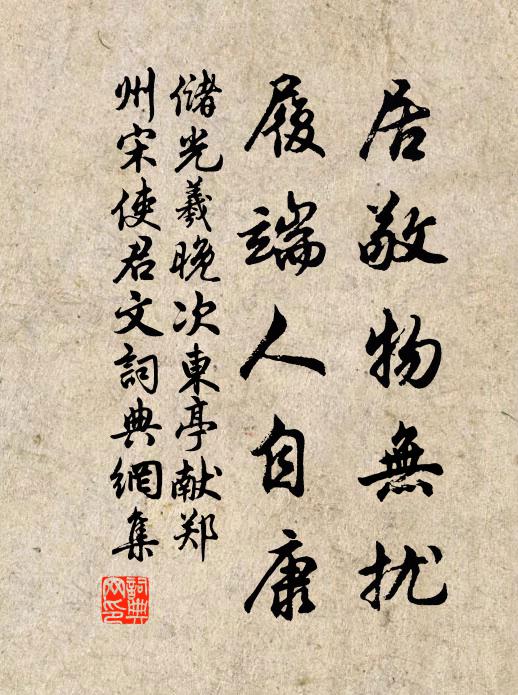 居敬物無扰
履端人自康
储光羲晚次東亭献郑
州宋使君文詞典網集
詞典
网印